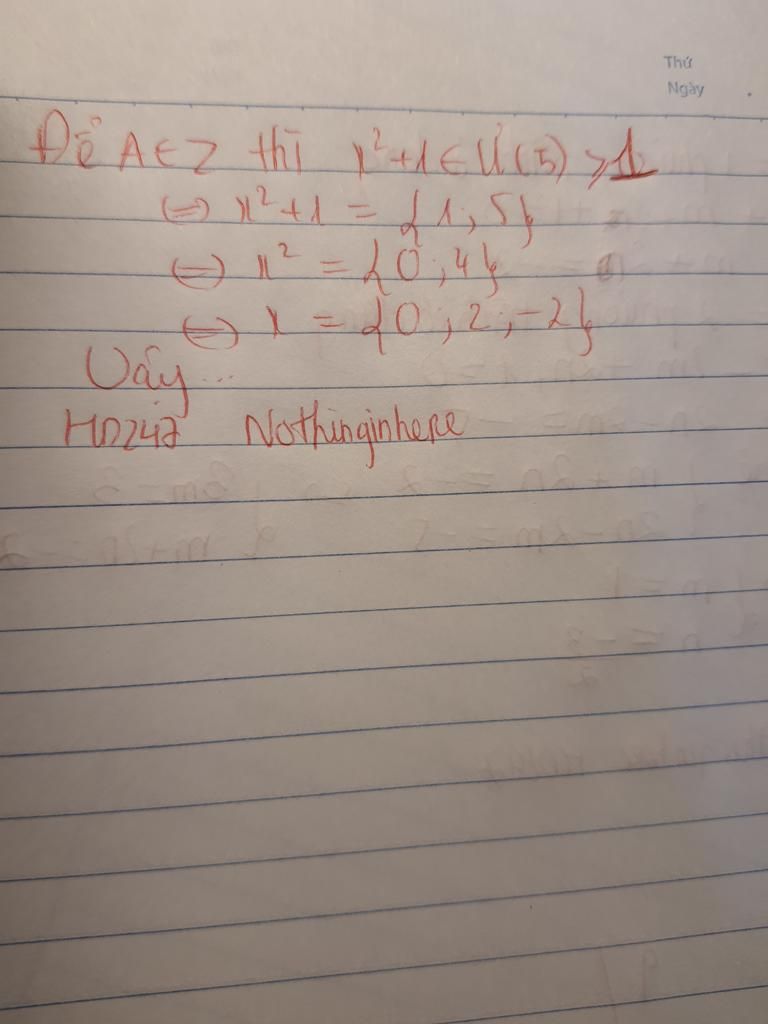 Thứ
Ngày
Để A ∈ Z thì x²+1 ∈ Ư(5) ≥ 1
⇔ x²+1 = {1; 5}
⇔ x² = {0; 4}
⇔ x = {0; 2; -2}
Vậy...
HD247 Nothinginhere